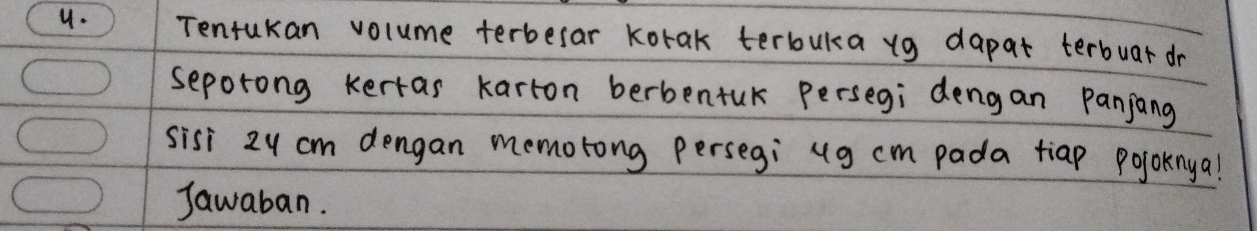 4. Tentukan volume terbesar kotak terbuka yg dapat terbuat dr
sepotong kertas karton berbentuk persegi dengan panjang
sisi 24 cm dengan memotong persegi yg cm pada tiap pojoknya!
Jawaban.